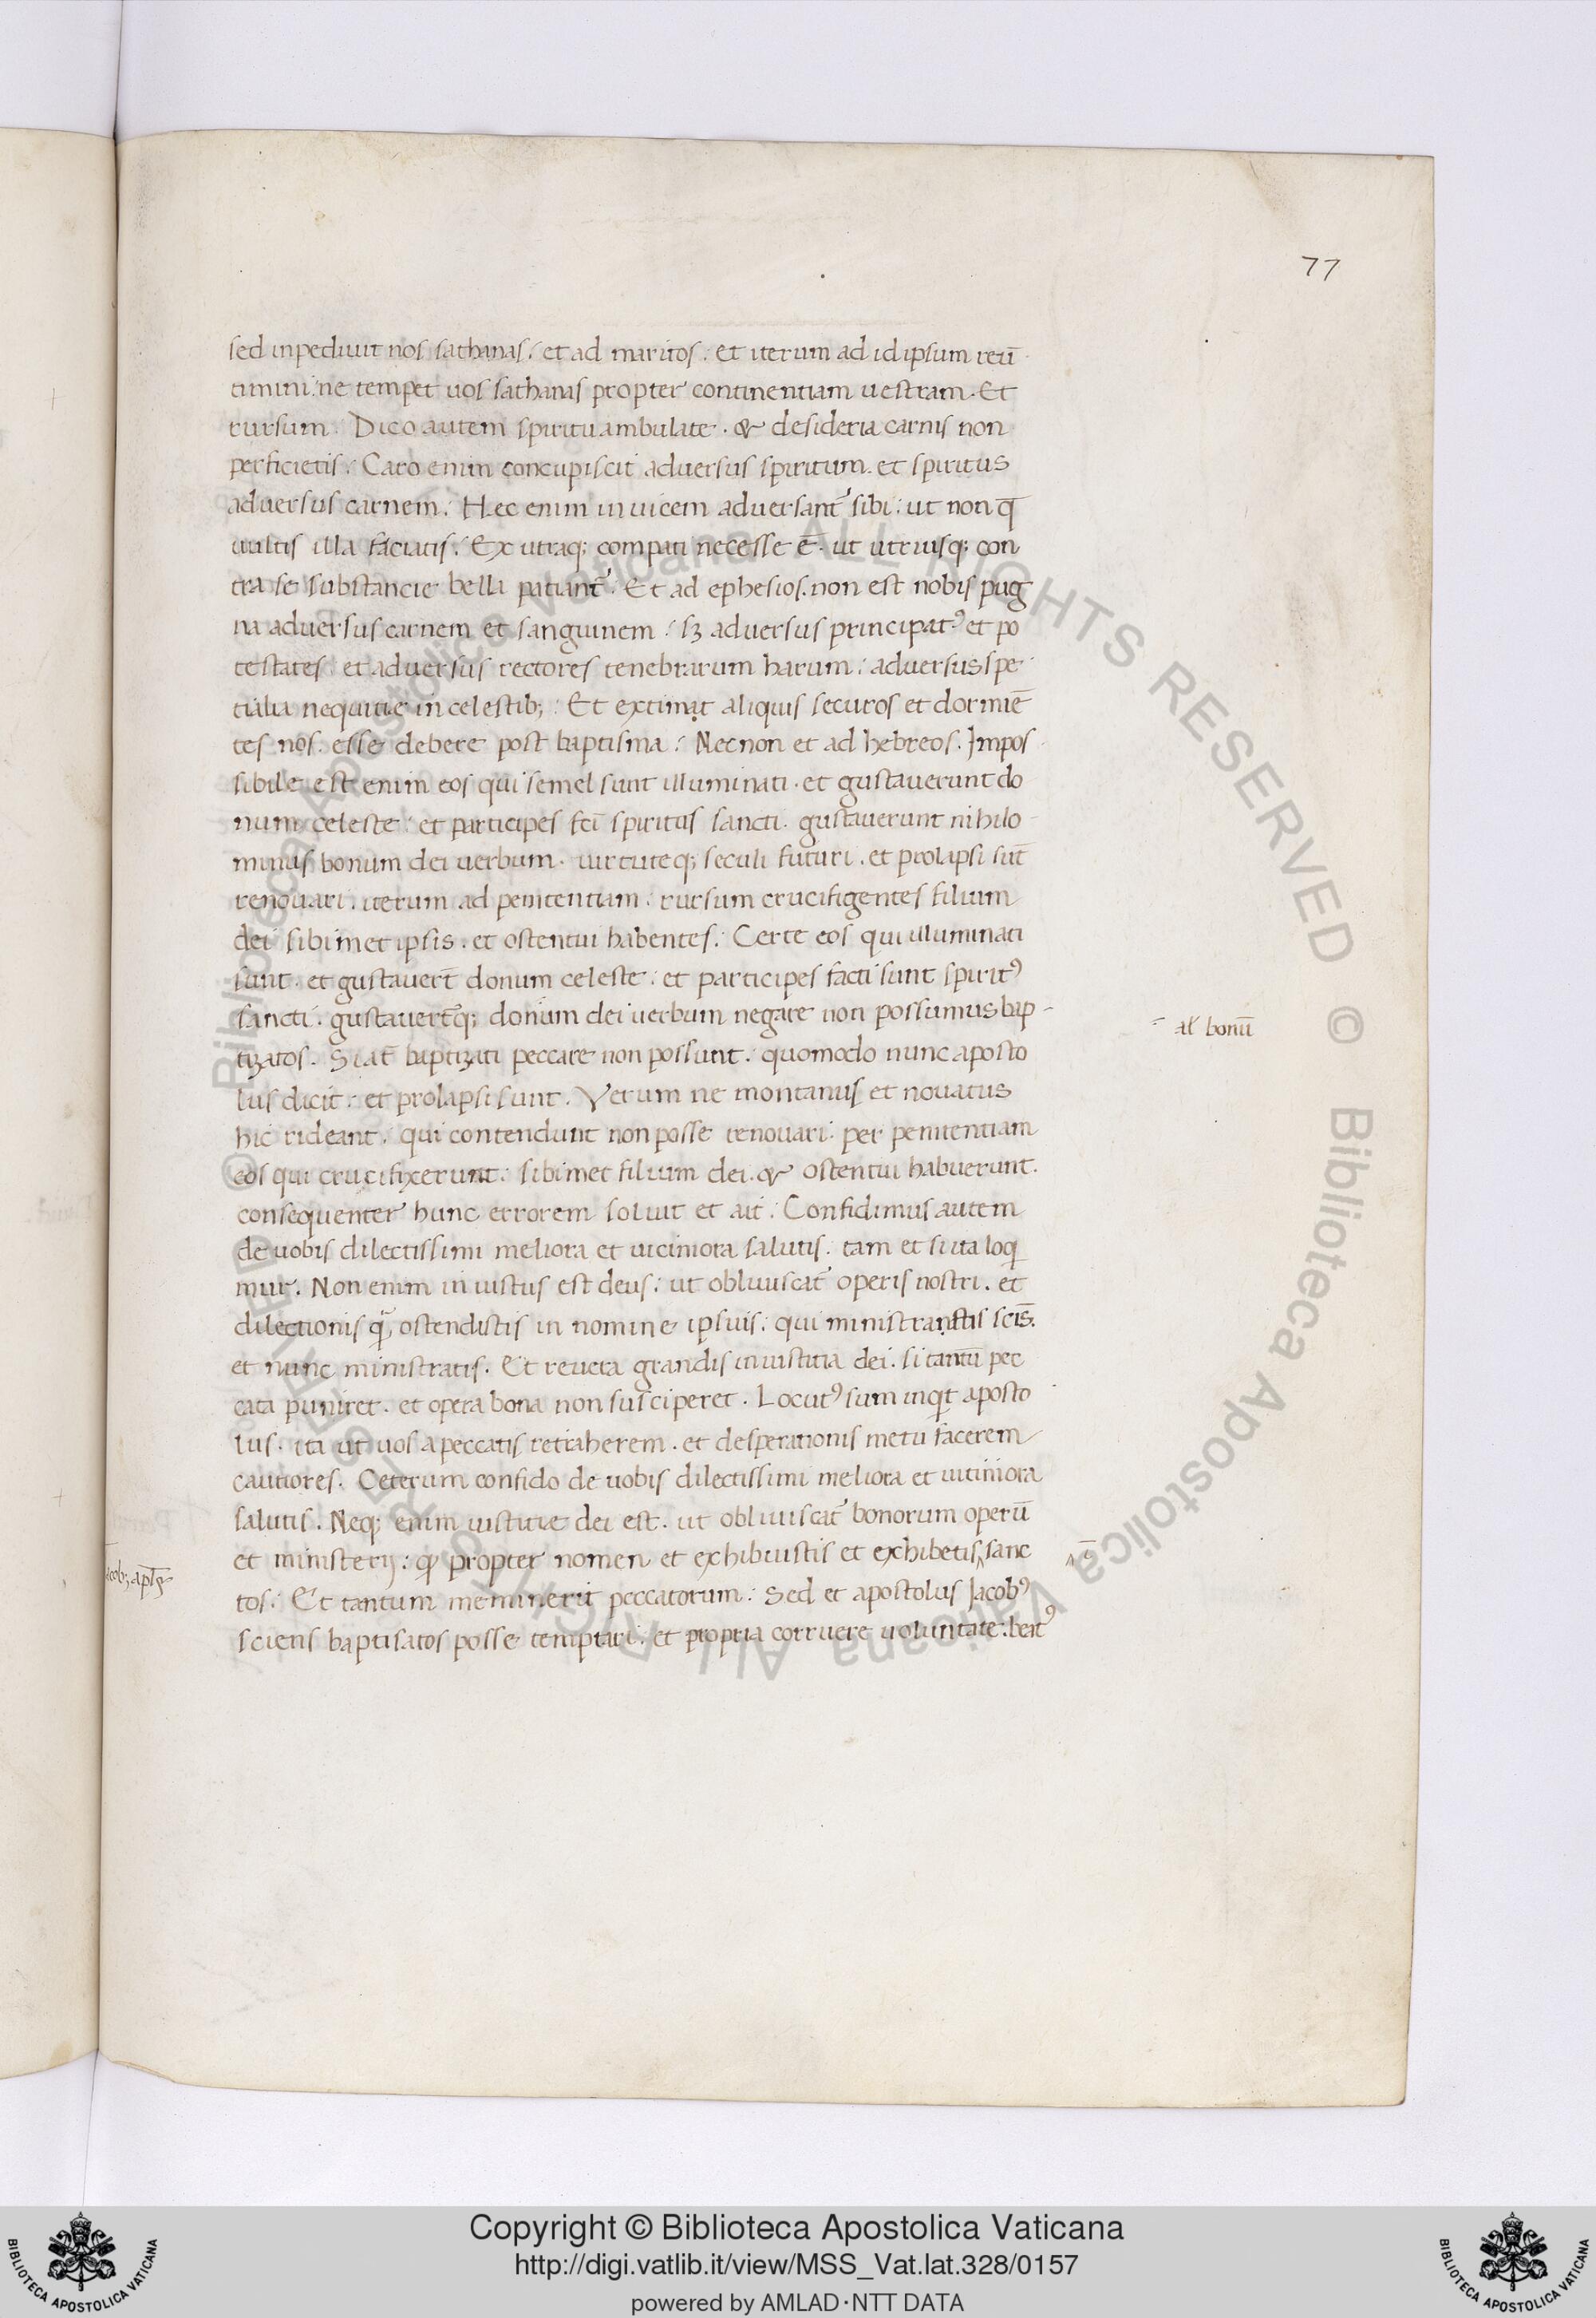 77
sed inpediuit nos sathanas. et ad maritos: et iterum ad id ipsum reū
timini: ne tempet uos sathanas propter continentiam uestram. Et
rursum. Dico autem spiritu ambulate. & desideria carnis non
perficietis. Caro enim concupiscit aduersus spiritum. et spiritus
aduersus carnem. Hec enim inuicem aduersant̉ sibi: ut non q̄
uultis illa faciatis. Ex utraq; compati necesse ē. ut utriusq; con
tra se substancie bella patiant̉. Et ad ephesios. non est nobis pug
na aduersus carnem et sanguinem: sꝫ aduersus principatꝰ et po
testates et aduersus rectores tenebrarum harum: aduersus spe
tialia nequitie in celestib;. Et extimat aliquis securos et dormiē
tes nos esse debere post baptisma. Necnon et ad hebreos. Impos
sibile est enim eos qui semel sunt illuminati. et gustauerunt do
num celeste: et participes fc̄i spiritus sancti. gustauerunt nihilo
minus bonum dei uerbum. uirtuteq; seculi futuri. et prolapsi sūt
renouari. iterum ad penitentiam: rursum crucifigentes filium
dei sibimet ipsis. et ostentui habentes. Certe eos qui illuminati
sunt. et gustauerт̄ donum celeste: et participes facti sunt spiritꝰ
sancti. gustauert̄q; donum dei uerbum negare non possumus bap-
- al' bonū
tizatos. Si aт̄ baptizati peccare non possunt: quomodo nunc aposto
lus dicit: et prolapsi sunt. Verum ne montanus et nouatus
hic rideant. qui contendunt non posse renouari per penitentiam
eos qui crucifixerunt: sibimet filium dei. & ostentui habuerunt.
consequenter hunc errorem soluit et ait: Confidimus autem
de uobis dilectissimi meliora et uiciniora salutis. tam et si ita loq̄
mur. Non enim iniustus est deus: ut obliuiscat̉ operis nostri. et
dilectionis quā ostendistis in nomine ipsius: qui ministrastis sc̄is.
et nunc ministratis. Et reuera grandis iniustitia dei. si tantū pec
cata puniret. et opera bona non susciperet. Locutꝰ sum inqͥt aposto
lus. ita ut uos a peccatis retraherem. et desperationis metu facerem
cautiores. Ceterum confido de uobis dilectissimi meliora et uiciniora
salutis. Neq; enim iustitie dei est. ut obliuiscat̉ bonorum operū
et ministerij: qͦ propter nomen et exhibuistis et exhibetis, sanc
tos. Et tantum meminerit peccatorum: Sed et apostolus Jacobꝰ
sciens baptisatos posse temptari. et propria corruere uoluntate: beatꝰ
Copyright © Biblioteca Apostolica Vaticana
http://digi.vatlib.it/view/MSS_Vat.lat.328/0157
powered by AMLAD·NTT DATA
BIBLIOTECA APOSTOLICA VATICANA
BIBLIOTECA APOSTOLICA VATICANA
© Biblioteca Apostolica Vaticana ALL RIGHTS RESERVED © Biblioteca Apostolica Vaticana ALL RIGHTS RESERVED